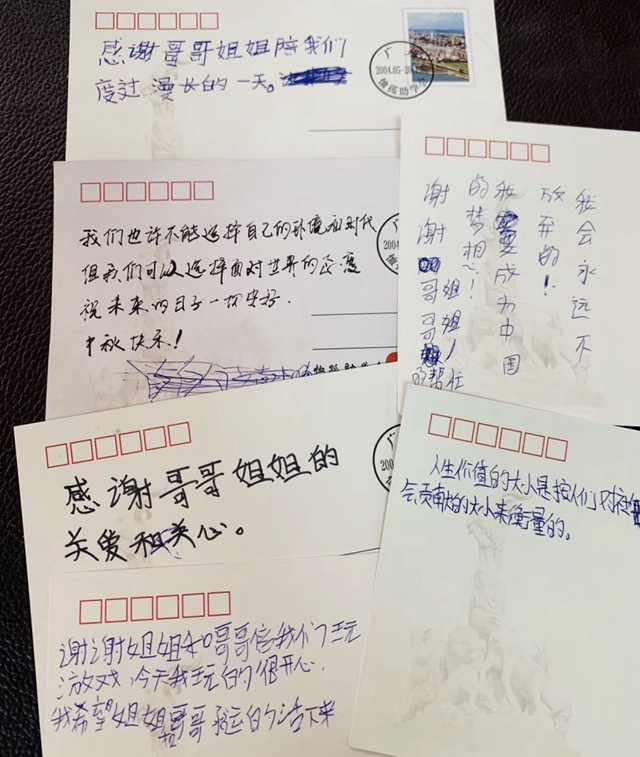 感谢哥哥姐姐陪我们
度过漫长的一天。
广
2004.05-20
我们也许不能选择自己的环境和时代
但我们可以选择面对世界的态度
祝未来的日子一切安好.
中秋快乐!
2004
我会永远不
放弃的!
我要成为中国
的梦想!
谢谢
哥姐
哥姐
的帮
感谢哥哥姐姐的
关爱和关心。
广
2004.0
人生价值的大小是按人们对社
会贡献的大小来衡量的。
谢谢姐姐和哥哥陪我们玩
游戏,今天我玩的很开心.
我希望姐姐和哥哥的活下来